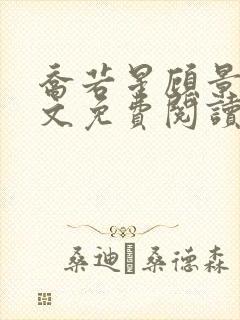 喬若星顧景
文免費閱讀
桑迪 桑德森